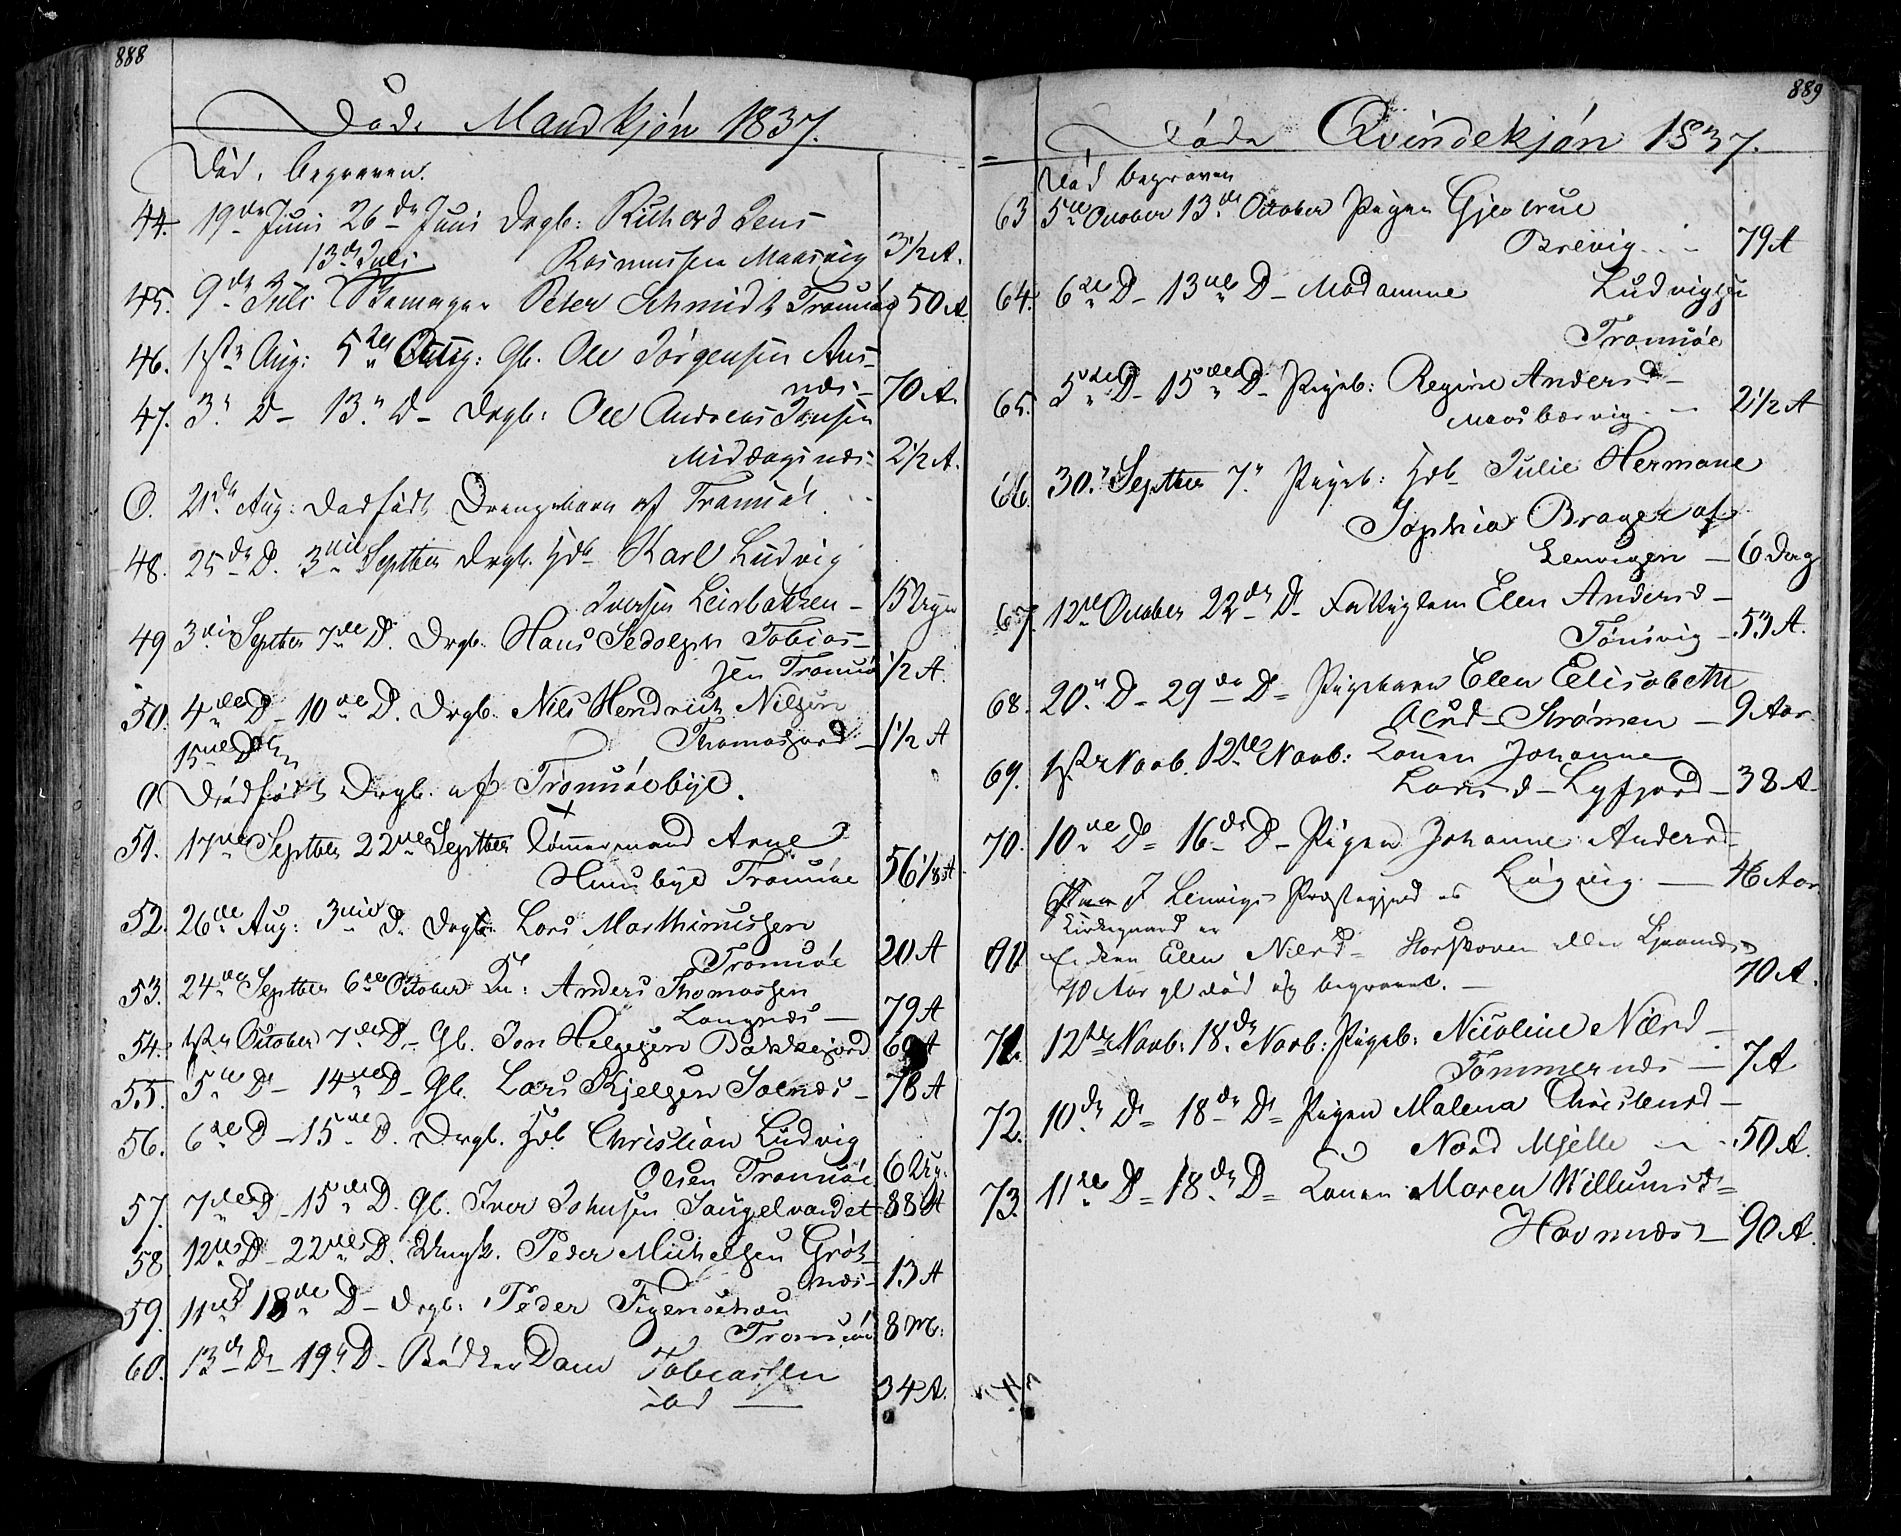 888
Døde Mandkjøn 1837.
Død. begraven.
44. 19de Juni 26de Juni Drgb: Richard Jens
Rasmussen Maasvig 3½ A.
13de Juli
45. 9de Juli Skomager Peter Schmidt Tromsøe 50 A
46. 1ste Aug: 5te Aug: Gb. Ole Jørgensen Aus-
næs- 70 A.
47. 3. D- 13. D- Drgb: Ole Andreas Jensen
Middagsnæs- 2½ A.
O. 21de Aug: dødfødt Drengebarn af Tromsøe
48. 25de D. 3die Septber Drgb. Hdb Karl Ludvig
Iversen Leirbakken- 15 Uger
49 3die Septber 7de D. Drgb. Hans Sedolph Tobias-
sen Tromsø ½ A.
50. 4de D- 10de D. Drgb. Nils Hendrich Nilsen
Thomasjord- 1½ A
15de D
O Dødfødt Drgb. af Tromsøebye.
51. 17de Septber 22de Septber Tømmermand Arne
Huusbye Tromsøe 56 1/8 A
52. 26de Aug: 3die D. Drgb. Lars Marthinussen
Tromsøe 20 A
53. 24de Septber 6te October Anders Thomassen
Langnæs- 79 A
54. 1ste October 7de D- Gb. Jon Helgesen Bakkejord 60 A
55. 5te D- 14de D- Gb. Lars Kjelsen Solnæs- 78 A
56. 6te D- 15de D. Drgb. Hdb Christian Ludvig
Olsen Tromsøe 6 Ug.
57. 7de D- 15de D. Gb. Iver Johnsen Saugelvandet 88 A
58 12te D- 22de D. Ungk. Peder Michelsen Grøt-
næs- 13 A
59. 11te D 18de D- Drgb: Peder Figenschau
Tromsøe 8 M:
60. 13de D- 19. D- Bødker Dam Tobiassen
ibd — 34 A.
889
Døde Qvindekjøn 1837.
Død begraven
63 5te October 13de October Pigen Gjertrud
Brevig 79 A
64. 6te D- 13de D- Madamme Ludvigsen
Tromsøe
65. 5te D- 15de D- Pigeb: Regine Andersd-
Maasbærvig- 2½ A
66. 30. Septber 7. Pigeb: Hdb Julie Hermane
Sophia Brager af
Lenvigen - 6 Dag
67. 12te October 22de D- Fattiglem Elen Andersd-
Tønsvig- 53 A.
68. 20. D- 29de D- Pigebarn Elen Elisabeth
Strømen - 9 Aar
69. 1ste Novb. 12te Novb: Konen Johanne
Larsd- Lyfjord- 38 A
70. 10de D- 16de D- Pigen Johanne Andersd-
Løgvig — 46 Aar
I Lenvigs Præstegjeld
Kirkegaard er
Enken Elen Nilsd-
70 Aar gl død og begravet. - 70 A.
71. 12te Novb: 18de Novb: Pigeb: Nicoline Nilsd-
Tømmernæs- 7 A
72. 10de D- 18de D- Pigen Malena Christensd-
Nord Mjelle 50 A.
73. 11te D- 18de D- Konen Maren Willumsd-
Havnnæs- 90 A.